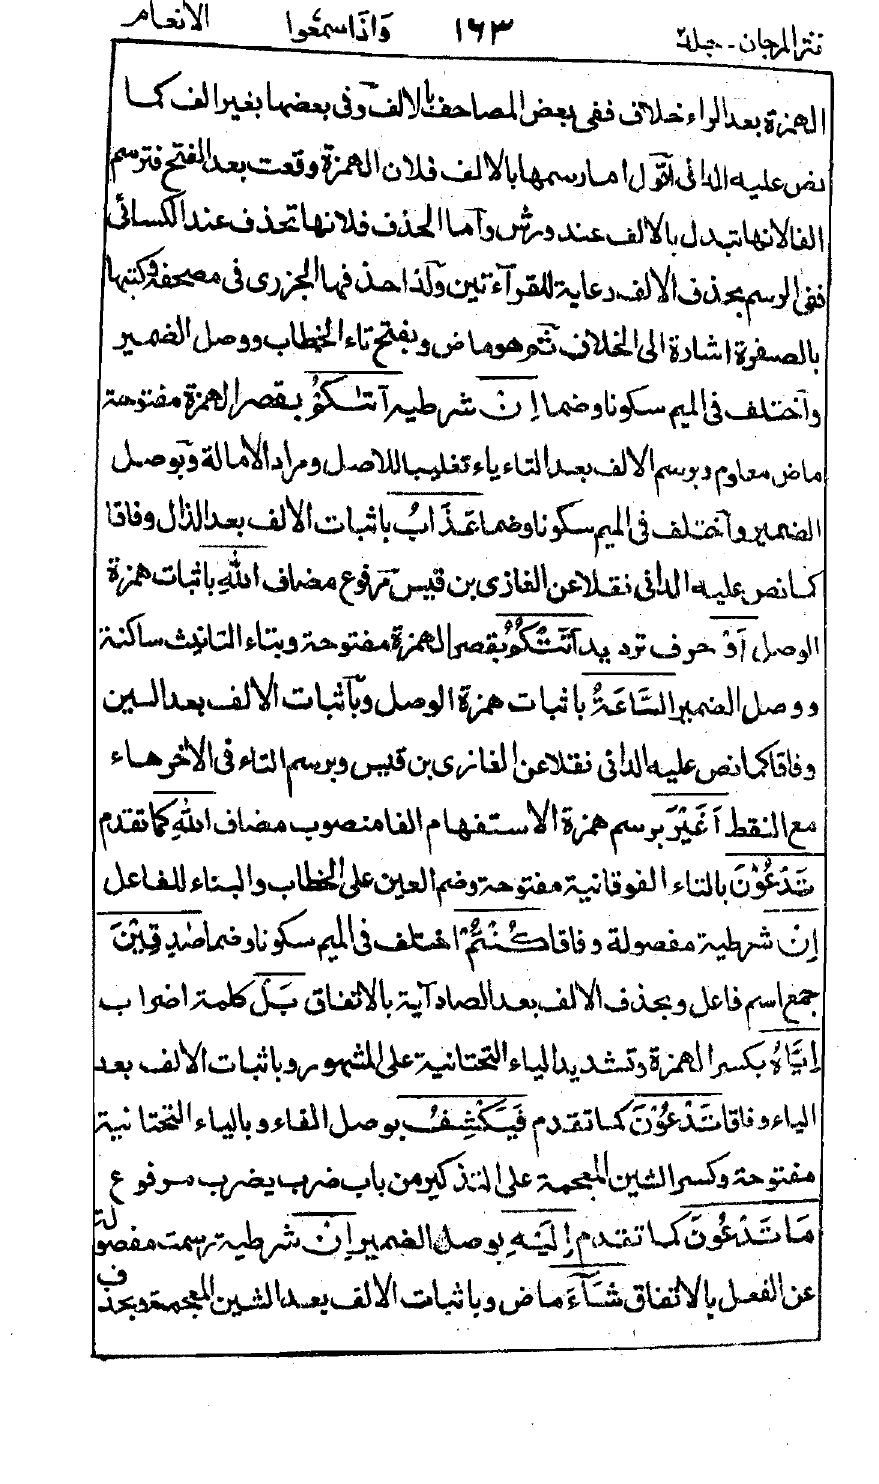 نثر المرجان - جلد ۲ ۱۶۳ وَاذَا سمعُوا الانعام
الهمزة بعد الراء خلاف ففى بعض المصاحف بالالف وفى بعضها بغير الف كما
نص عليه الدانى اقول اما رسمها بالالف فلان الهمزة وقعت بعد الفتح فترسم
الفا لانها تبدل بالالف عند ورش واما الحذف فلانها تحذف عند الكسائى
ففى الرسم بحذف الالف رعاية للقرآءتين ولذا حذفها الجزرى فى مصحفه وكتبها
بالصفرة اشارة الى الخلاف ثم هو ماض وبفتح تاء الخطاب ووصل الضمير
واختلف فى الميم سكونا وضما اِنْ شرطية اَتٰىكُمْ بقصر الهمزة مفتوحة
ماض معلوم وبرسم الالف بعد التاء ياء تغليبا للاصل ومراد الامالة وبوصل
الضمير واختلف فى الميم سكونا وضما عَذَابُ باثبات الالف بعد الذال وفاقا
كما نص عليه الدانى نقلا عن الغازى بن قيس مرفوع مضاف اللّٰهِ باثبات همزة
الوصل اَوْ حرف ترديد اَتَتْكُمُ بقصر الهمزة مفتوحة وبتاء التانيث ساكنة
ووصل الضمير السَّاعَةُ باثبات همزة الوصل وباثبات الالف بعد السين
وفاقا كما نص عليه الدانى نقلا عن الغازى بن قيس وبرسم التاء فى الاخر هاء
مع النقط اَغَيْرَ برسم همزة الاستفهام الفا منصوب مضاف اللّٰهِ كما تقدم
تَدْعُوْنَ بالتاء الفوقانية مفتوحة وضم العين على الخطاب والبناء للفاعل
اِنْ شرطية مفصولة وفاقا كُنْتُمْ اختلف فى الميم سكونا وضما صٰدِقِيْنَ
جمع اسم فاعل وبحذف الالف بعد الصاد آية بالاتفاق بَلْ كلمة اضراب
اِيَّاهُ بكسر الهمزة وتشديد الياء التحتانية على المشهور وباثبات الالف بعد
الياء وفاقا تَدْعُوْنَ كما تقدم فَيَكْشِفُ بوصل الفاء وبالياء التحتانية
مفتوحة وكسر الشين المعجمة على التذكير من باب ضرب يضرب مرفوع
مَا تَدْعُوْنَ كما تقدم اِلَيْهِ بوصل الضمير اِنْ شرطية رسمت مفصولة
عن الفعل بالاتفاق شَآءَ ماض وباثبات الالف بعد الشين المعجمة وبحذف